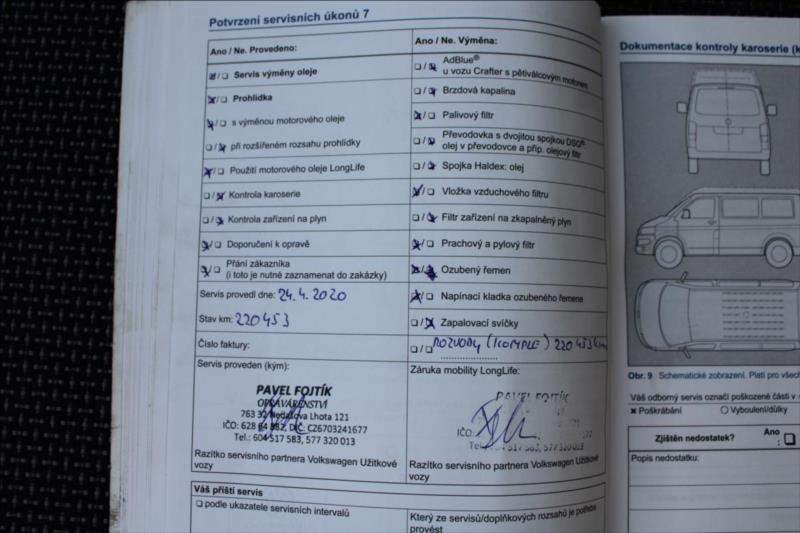 Potvrzení servisních úkonů 7
Ano / Ne. Provedeno:
Servis výměny oleje
Prohlídka
s výměnou motorového oleje
při rozšířeném rozsahu prohlídky
Použití motorového oleje LongLife
Kontrola karoserie
Kontrola zařízení na plyn
Doporučení k opravě
Přání zákazníka
(i toto je nutné zaznamenat do zakázky)
Servis provedl dne: 24.4.2020
Stav km: 220453
Číslo faktury:
Servis proveden (kým):
PAVEL FOJTÍK
OPRAVÁRENSTVÍ
763 32 Nedašova Lhota 121
IČO: 628 64 882, DIČ: CZ6703241677
Tel.: 604 517 583, 577 320 013
Razítko servisního partnera Volkswagen Užitkové
vozy
Váš příští servis
podle ukazatele servisních intervalů
Ano / Ne. Výměna:
AdBlue®
u vozu Crafter s pětiválcovým motorem
Brzdová kapalina
Palivový filtr
Převodovka s dvojitou spojkou DSG®
olej v převodovce a příp. olejový filtr
Spojka Haldex: olej
Vložka vzduchového filtru
Filtr zařízení na zkapalněný plyn
Prachový a pylový filtr
Ozubený řemen
Napínací kladka ozubeného řemene
Zapalovací svíčky
ROZVODY (KOMPLE) 220453 km
Záruka mobility LongLife:
PAVEL FOJTÍK
IČO:
Tel.: 604 517 583, 577 320 013
Razítko servisního partnera Volkswagen Užitkové
vozy
Který ze servisů/doplňkových rozsahů je potřeba
provést
Dokumentace kontroly karoserie (k
Obr. 9 Schematické zobrazení. Platí pro všech
Váš odborný servis označí poškozené části v
Poškrábání
Vyboulení/důlky
Zjištěn nedostatek?
Ano
:
Popis nedostatku: